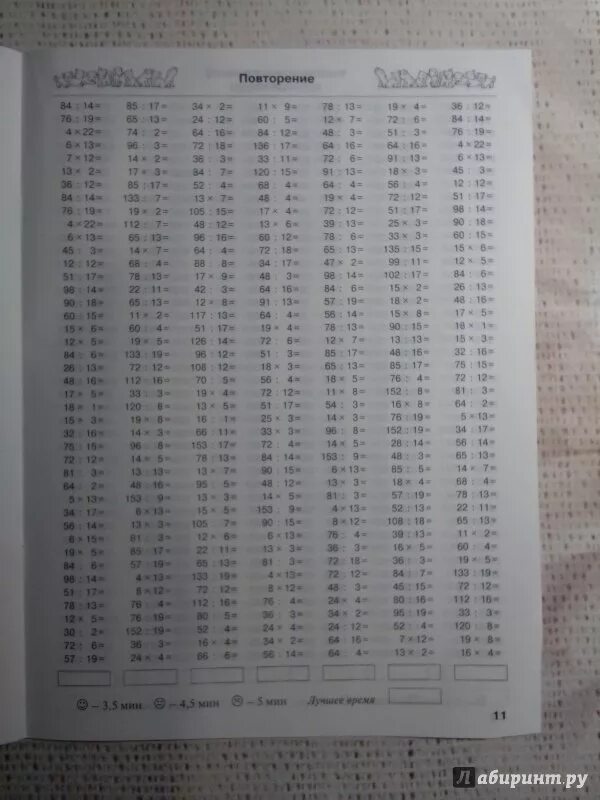 Повторение
84 : 14= 85 : 17= 34 × 2= 11 × 9= 78 : 13= 19 × 4= 36 : 12=
76 : 19= 65 : 13= 24 : 12= 60 : 5= 12 × 7= 72 : 6= 84 : 14=
4 × 22= 74 : 2= 64 : 16= 84 : 12= 48 : 3= 51 : 3= 76 : 19=
6 × 13= 96 : 3= 72 : 18= 136 : 17= 64 : 16= 64 : 16= 4 × 22=
7 × 12= 14 × 2= 36 : 3= 33 : 11= 72 : 6= 91 : 13= 6 × 13=
13 × 2= 17 × 3= 84 : 7= 120 : 15= 91 : 13= 18 × 3= 45 : 3=
36 : 12= 85 : 17= 52 : 4= 68 : 4= 64 : 4= 56 : 4= 12 : 12=
84 : 14= 133 : 7= 13 × 7= 48 : 4= 19 × 4= 72 : 12= 51 : 17=
76 : 19= 19 × 2= 105 : 15= 17 × 4= 72 : 12= 51 : 17= 98 : 14=
4 × 22= 112 : 7= 48 : 12= 13 × 6= 39 : 13= 25 × 3= 90 : 18=
6 × 13= 65 : 13= 96 : 16= 60 : 12= 78 : 6= 33 × 3= 60 : 15=
45 : 3= 14 × 7= 64 : 4= 72 : 18= 65 : 13= 135 : 15= 15 × 6=
12 : 12= 68 : 4= 88 : 8= 34 : 17= 47 × 2= 99 : 11= 12 × 5=
51 : 17= 78 : 13= 17 × 9= 48 : 3= 98 : 14= 102 : 17= 84 : 6=
98 : 14= 22 : 11= 42 : 3= 64 : 16= 84 : 6= 15 × 2= 26 : 13=
90 : 18= 65 : 13= 12 × 8= 91 : 13= 57 : 19= 18 × 2= 48 : 16=
60 : 15= 11 × 2= 117 : 13= 64 : 4= 56 : 14= 15 × 8= 17 × 5=
15 × 6= 60 : 4= 51 : 17= 19 × 4= 78 : 13= 90 : 15= 18 × 1=
12 × 5= 19 × 5= 126 : 14= 72 : 6= 12 × 7= 13 : 13= 15 × 3=
84 : 6= 133 : 19= 96 : 12= 51 : 3= 85 : 17= 48 : 16= 32 : 16=
26 : 13= 72 : 12= 108 : 12= 18 × 3= 65 : 13= 85 : 17= 75 : 15=
48 : 16= 112 : 16= 70 : 5= 56 : 4= 18 × 5= 76 : 4= 72 : 12=
17 × 5= 33 : 3= 19 × 4= 72 : 12= 11 × 8= 152 : 8= 81 : 3=
18 × 1= 120 : 8= 13 × 5= 51 : 17= 54 : 3= 16 × 8= 64 : 2=
15 × 3= 19 × 8= 16 : 1= 25 × 3= 14 × 3= 76 : 19= 5 × 13=
32 : 16= 14 × 3= 66 : 11= 33 × 3= 96 : 8= 152 : 19= 34 : 17=
75 : 15= 96 : 8= 153 : 17= 72 : 4= 14 × 5= 28 : 14= 56 : 14=
72 : 12= 14 × 5= 78 : 13= 84 : 14= 153 : 9= 48 : 3= 65 : 13=
81 : 3= 13 : 13= 13 × 7= 90 : 15= 6 × 13= 85 : 5= 14 × 7=
64 : 2= 48 : 16= 95 : 5= 48 : 12= 13 × 3= 18 × 4= 68 : 4=
5 × 13= 153 : 9= 48 : 3= 14 × 5= 81 : 3= 57 : 19= 78 : 13=
34 : 17= 6 × 13= 15 × 5= 153 : 9= 4 × 13= 52 : 13= 22 : 11=
56 : 14= 13 × 3= 105 : 7= 90 : 15= 8 × 12= 108 : 18= 65 : 13=
6 × 15= 81 : 3= 12 × 6= 6 × 13= 76 : 4= 39 : 13= 11 × 2=
19 × 5= 85 : 17= 22 : 11= 13 × 3= 36 : 3= 16 × 5= 60 : 4=
84 : 6= 57 : 19= 65 : 13= 81 : 3= 72 : 18= 36 : 3= 19 × 5=
98 : 14= 4 × 13= 133 : 19= 4 × 13= 72 : 12= 84 : 7= 133 : 19=
51 : 17= 8 × 12= 72 : 12= 8 × 12= 48 : 3= 45 : 15= 72 : 12=
78 : 13= 76 : 4= 112 : 16= 76 : 4= 24 × 4= 80 : 16= 112 : 16=
12 × 5= 76 : 19= 80 : 5= 36 : 3= 34 × 2= 95 : 19= 33 : 3=
30 : 2= 152 : 19= 52 : 4= 24 × 4= 24 : 12= 52 : 4= 120 : 8=
72 : 6= 36 : 3= 16 × 4= 34 × 2= 64 : 16= 7 × 12= 19 × 8=
57 : 19= 24 × 4= 66 : 6= 56 : 14= 64 : 4= 13 × 2= 16 × 4=
– 3,5 мин – 4,5 мин – 5 мин Лучшее время
11
Лабиринт.ру